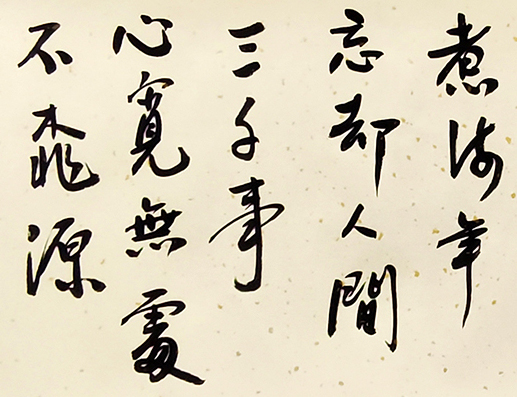 煮海年
忘却人間
三千事
心寬無處
不桃源